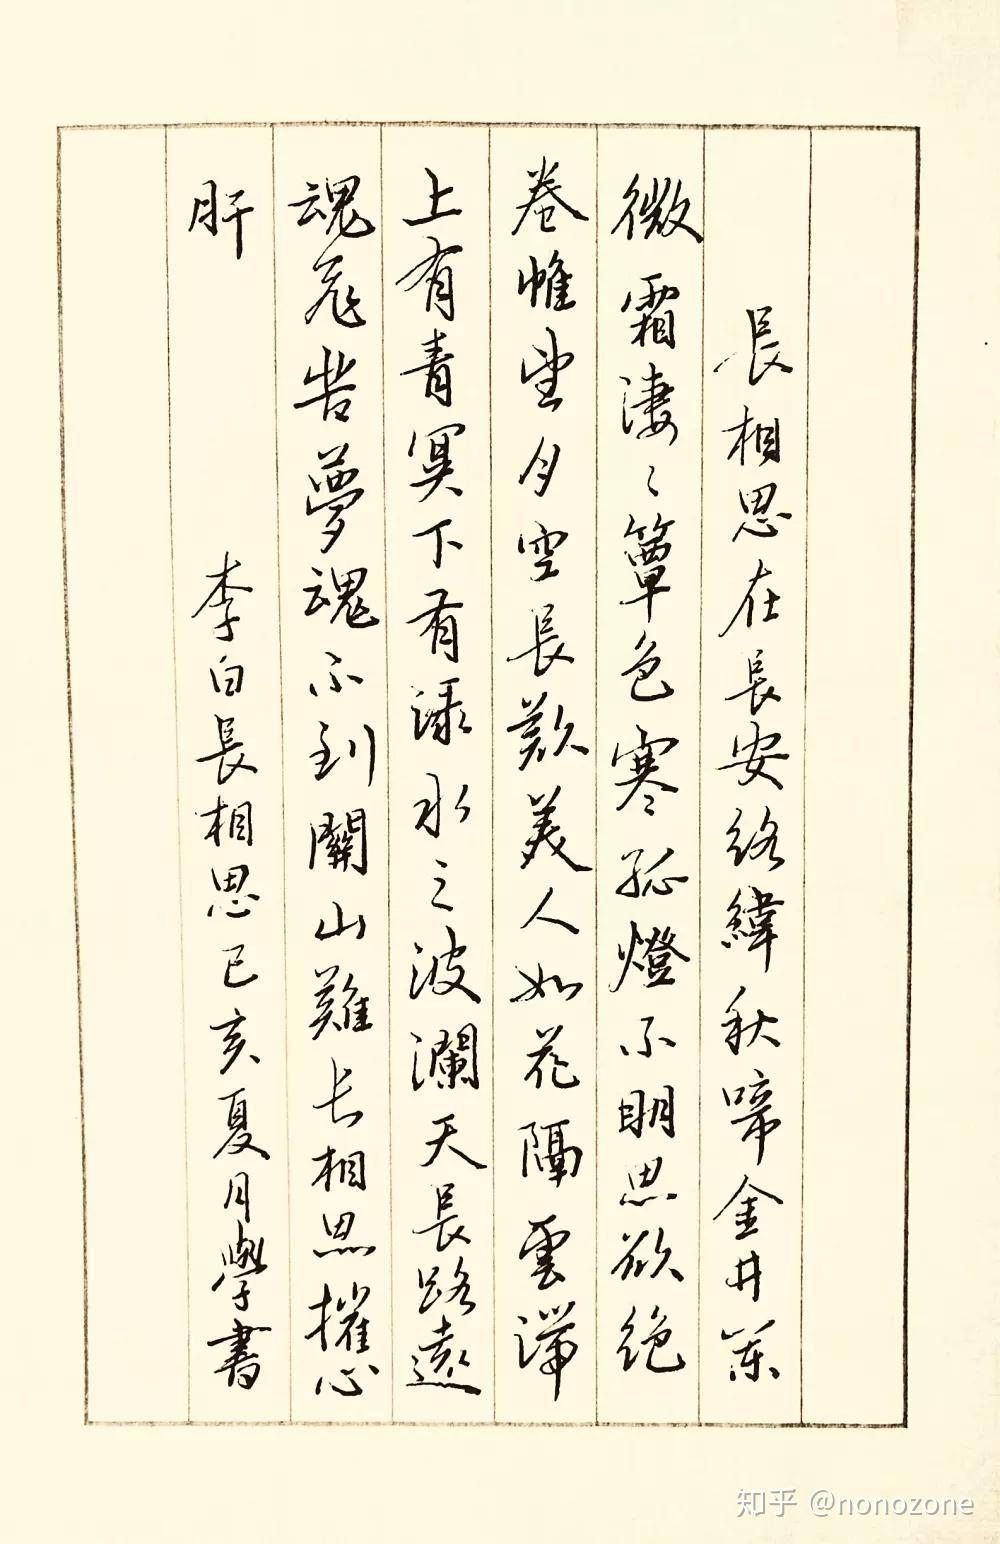 長相思在長安絡緯秋啼金井闌
微霜淒〻簟色寒孤燈不明思欲絕
卷帷望月空長歎美人如花隔雲端
上有青冥下有淥水之波瀾天長路遠
魂飛苦夢魂不到關山難长相思摧心
肝
李白長相思己亥夏月學書
知乎 @nonozone